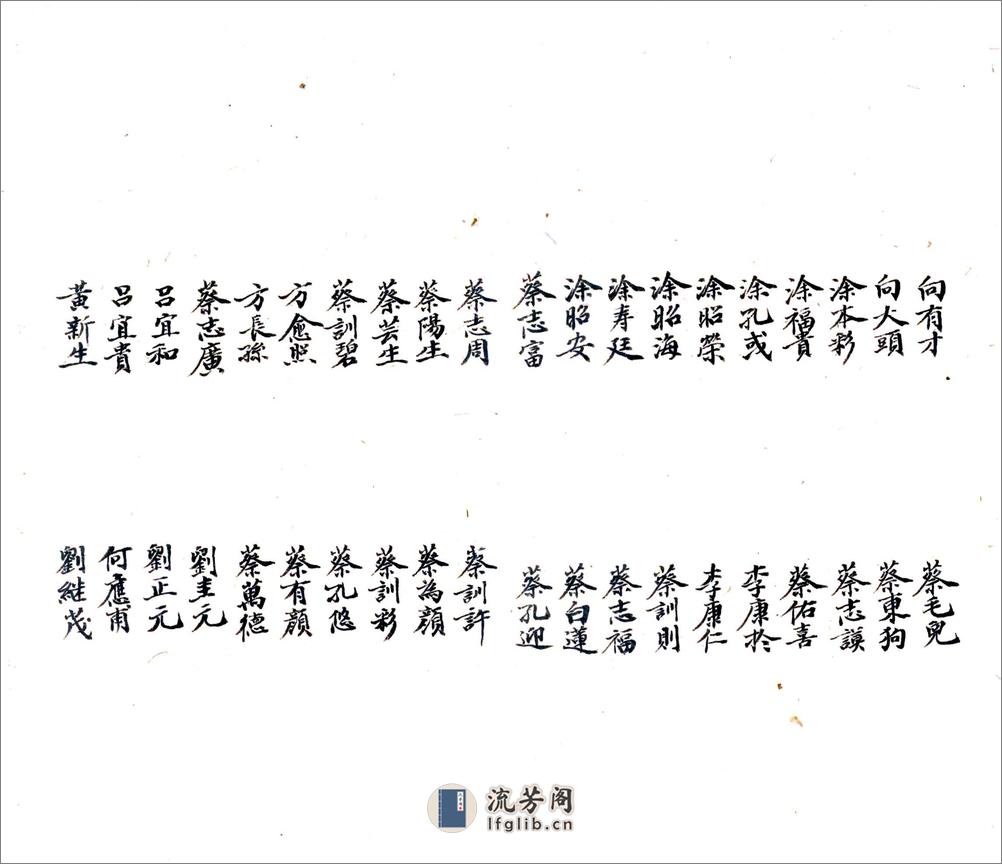 向有才
向火頭
涂本彩
涂福貴
涂孔彧
涂昭榮
涂昭海
涂寿廷
涂昭安
蔡志富
蔡志周
蔡陽生
蔡芸生
蔡訓碧
方愈照
方長孫
蔡志廣
呂宜和
呂宜貴
黃新生
蔡毛兒
蔡東狗
蔡志謨
蔡佑喜
李康於
李康仁
蔡訓則
蔡志福
蔡白蓮
蔡孔迎
蔡訓許
蔡為顏
蔡訓彩
蔡孔悠
蔡有顏
蔡萬德
劉圭元
劉正元
何應甫
劉継茂
流芳阁
lfglib.cn